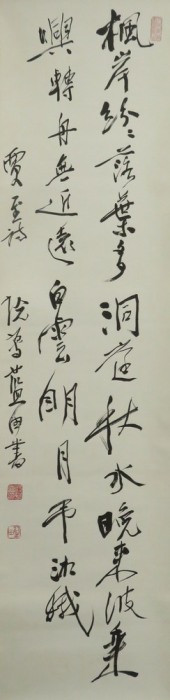 楓岸紛〻落葉多洞庭秋水晚來波乘
興輕舟無近遠白雲明月弔湘娥
賈至詩 書